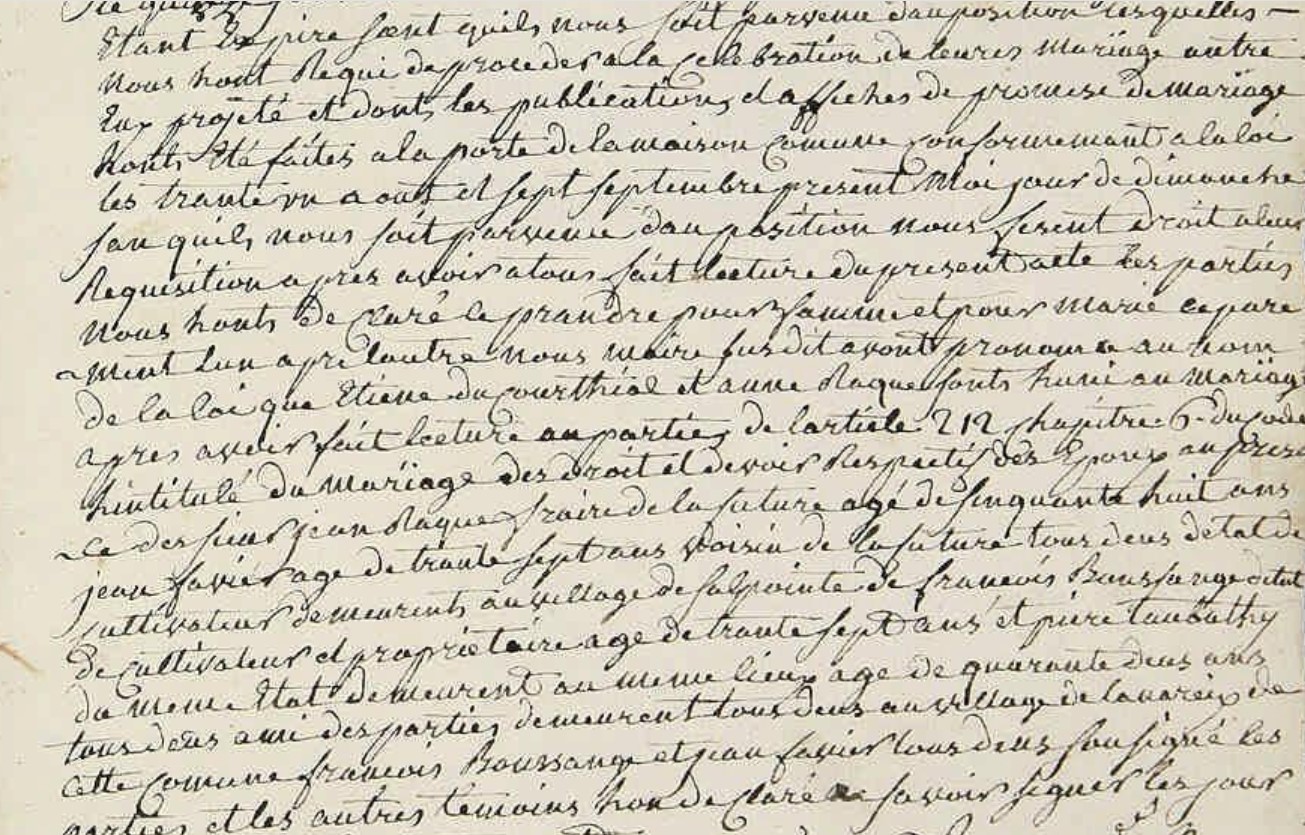 Etant Expire sænt quils nous soit parvenu dauposition lesquelles —
nous hont Requi de proceder a la celebration de leures mariage autre
Eux projété et donts les publications et affiches de promese de mariage
honts Eté faites a la porte de la maison comune conformemant a la loi
les trante un aout et sept septembre present Moi jour de dimanche
san quils nous soit parvenue dauposition nous fesent droit a leur
Requisition apres avoir atous fait lecture du present acte les parties
nous honts de claré ce prandre pour famme et pour marie ceparé
ment lun apré lautre nous maire susdit avont prononcé au nom
de la loi que Etiene du courthial et anne Raque sonts huni au mariage
apres avoir fait lecture au parties de larticle 212 chapitre 6 du code
hintitulé du mariage des droit et devoir Respectif des Epoux au presen
ce des sieur jean Raque fraire de la future agé de sinquante huit ans
jean favier age de trante sept ans voisin de la future tous deus détat de
cultivateur demeurents au village de salpointe de francois Boussange
de cultivateur et propriétaire age de trante sept ans et piere taubathy
du meme Etat demeurent au meme lieux age de quarante deus ans
tous deus ami des parties demeurent tous deus au village de lavareix de
cette comune francois Boussange et jean favier tous deus sousigné les
parties et les autres temoins hon de claré ne savoir signer les jour